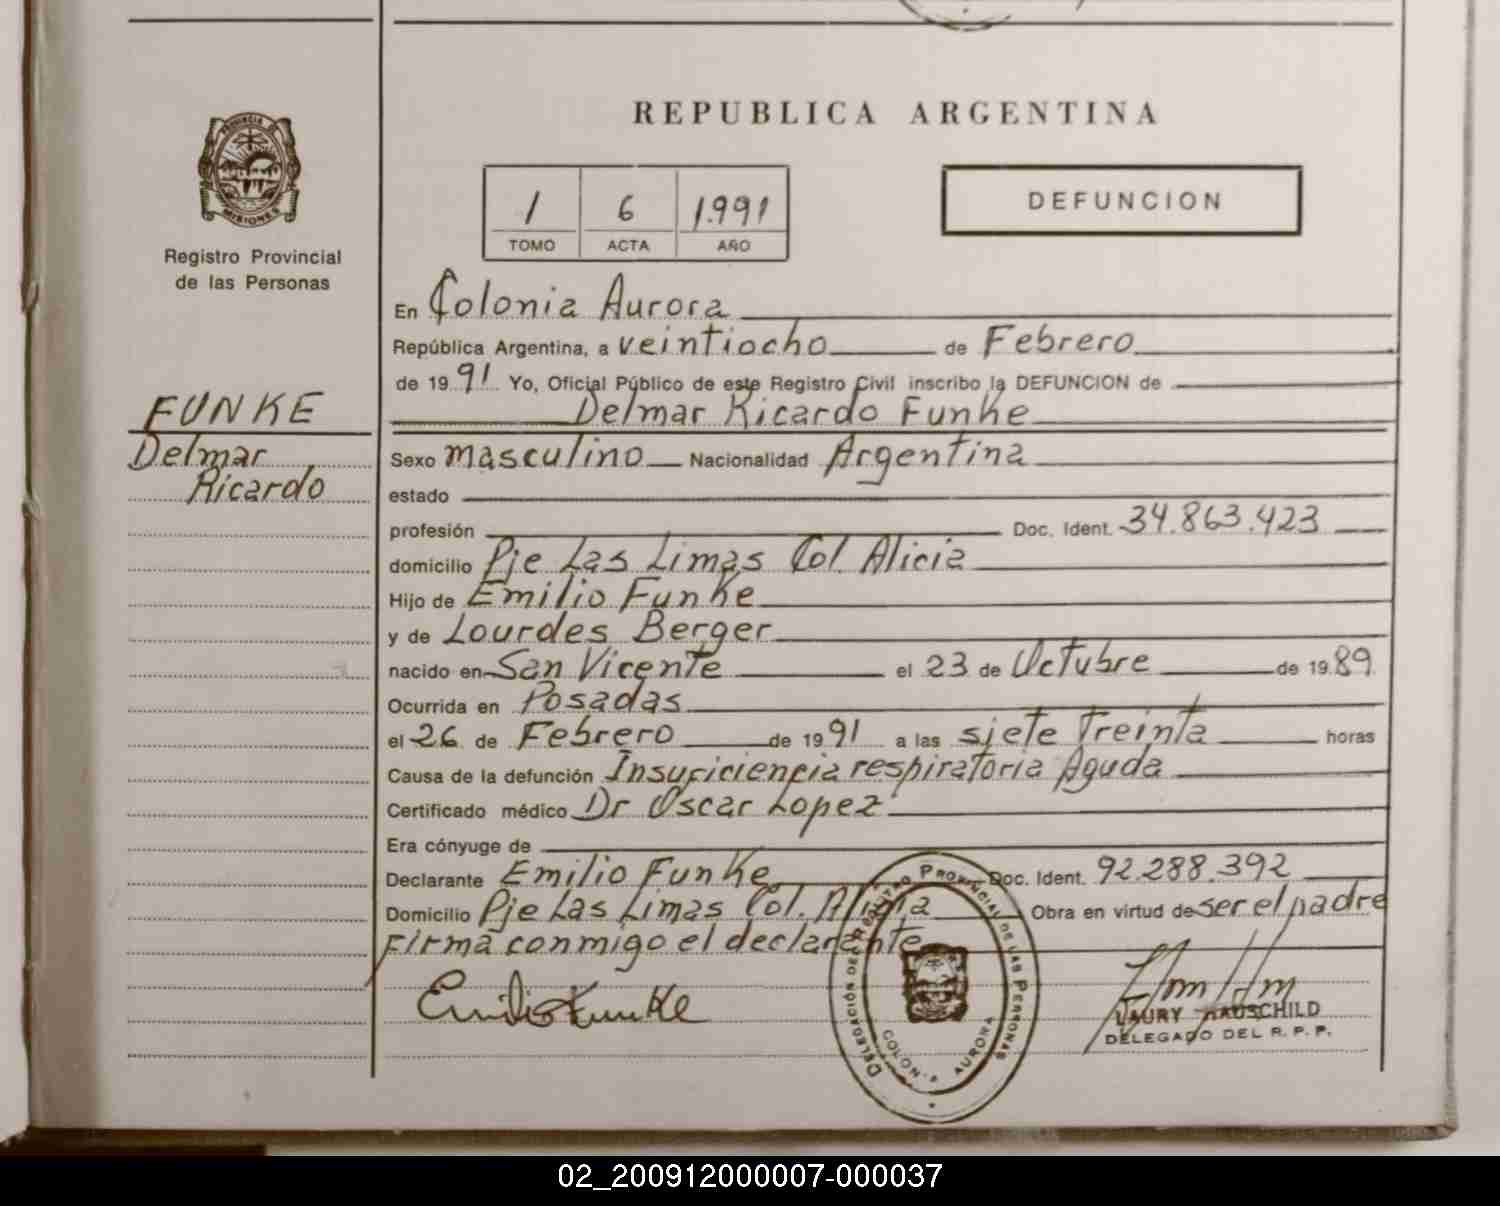 REPUBLICA ARGENTINA
PROVINCIA DE
MISIONES
Registro Provincial
de las Personas
1 6 1.991
TOMO ACTA AÑO
DEFUNCION
En Colonia Aurora
República Argentina, a veintiocho de Febrero
de 1991 Yo, Oficial Público de este Registro Civil inscribo la DEFUNCION de
Delmar Ricardo Funke
FUNKE
Delmar
Ricardo
Sexo masculino Nacionalidad Argentina
estado
profesión Doc. Ident. 34.863.423
domicilio Pje Las Limas Col. Alicia
Hijo de Emilio Funke
y de Lourdes Berger
nacido en San Vicente el 23 de Octubre de 1989
Ocurrida en Posadas
el 26 de Febrero de 1991 a las siete Treinta horas
Causa de la defunción Insuficiencia respiratoria Aguda
Certificado médico Dr Oscar Lopez
Era cónyuge de
Declarante Emilio Funke Doc. Ident. 92.288.392
Domicilio Pje Las Limas Col. Alicia Obra en virtud de ser el padre
Firma conmigo el declarante
Emilio Funke
DELEGACIÓN DEL REGISTRO PROVINCIAL DE LAS PERSONAS
COLONIA AURORA
LAURY HAUSCHILD
DELEGADO DEL R. P. P.
02_200912000007-000037